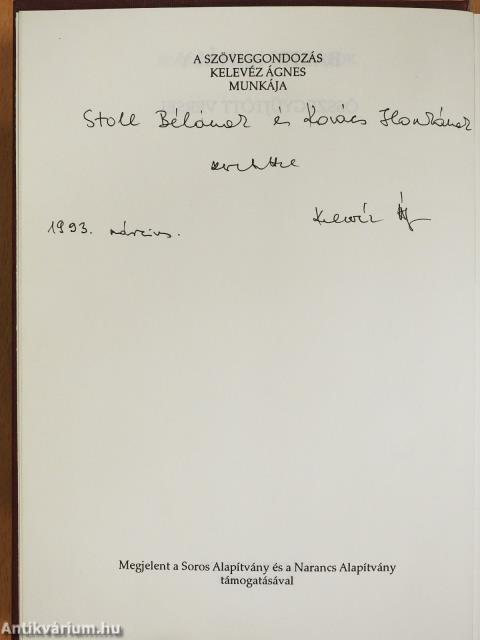 A SZÖVEGGONDOZÁS
KELEVÉZ ÁGNES
MUNKÁJA
Stoll Bélának és Kovács Ilonkának
szeretettel
1993. március.
Kelevéz Á
Megjelent a Soros Alapítvány és a Narancs Alapítvány
támogatásával
Antikvárium.hu